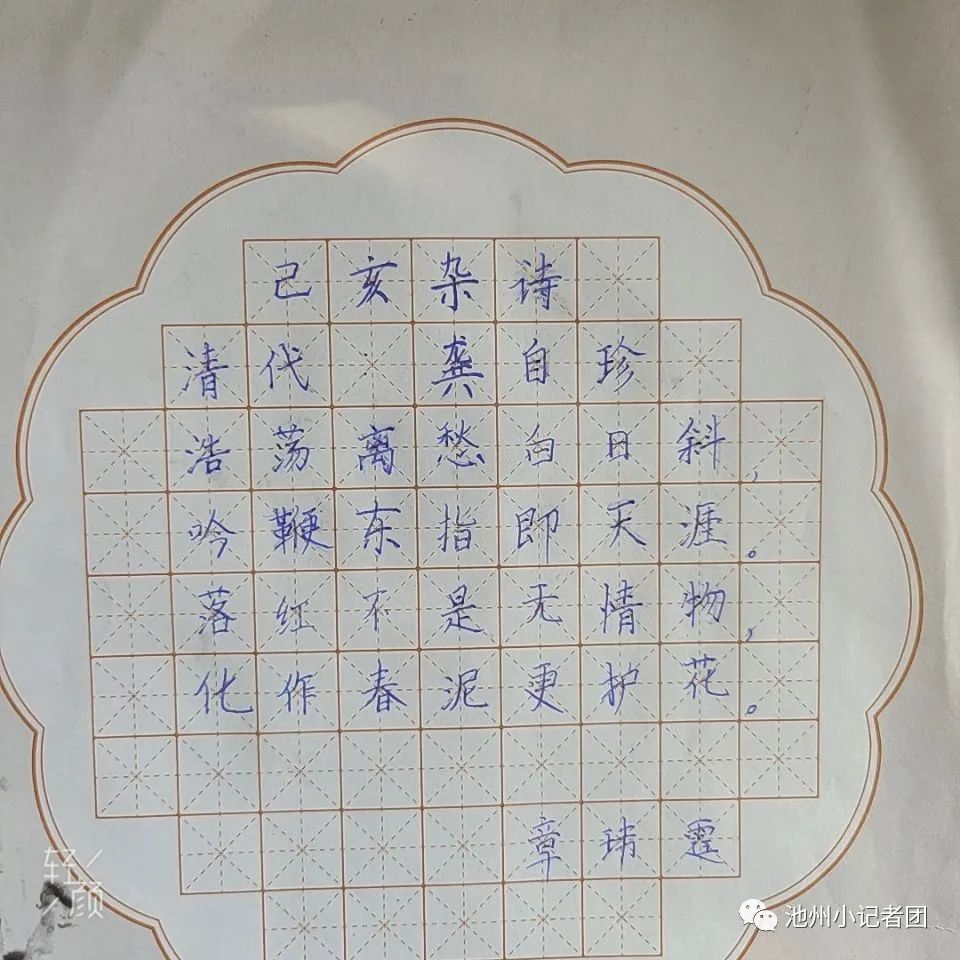 己亥杂诗
清代 龚自珍
浩荡离愁白日斜，
吟鞭东指即天涯。
落红不是无情物，
化作春泥更护花。
章玮霆
轻颜
池州小记者团